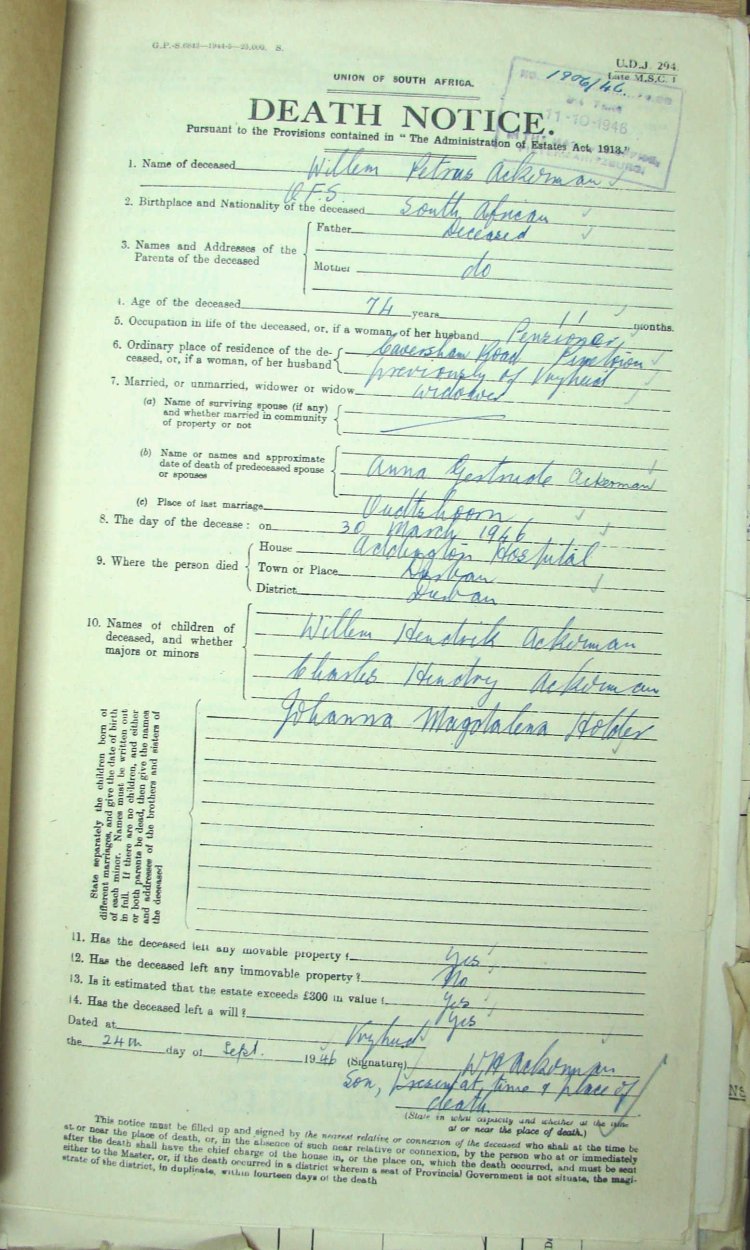 G.P.-S.6842—1944-5—25,000. S.
U.D.J. 294
(Late M.S.C. 1
UNION OF SOUTH AFRICA.
NO. 1906/46
11-10-1946
DEATH NOTICE.
Pursuant to the Provisions contained in "The Administration of Estates Act, 1913."
1. Name of deceased Willem Petrus Ackerman
O.F.S.
2. Birthplace and Nationality of the deceased South African
3. Names and Addresses of the Parents of the deceased
Father Deceased
Mother do
4. Age of the deceased 74 years 11 months.
5. Occupation in life of the deceased, or, if a woman, of her husband Pensioner
6. Ordinary place of residence of the de- Caversham Road Pinetown
ceased, or, if a woman, of her husband previously of Vryheid
7. Married, or unmarried, widower or widow widower
(a) Name of surviving spouse (if any)
and whether married in community
of property or not
(b) Name or names and approximate
date of death of predeceased spouse Anna Gertrude Ackerman
or spouses
(c) Place of last marriage Oudtshoorn
8. The day of the decease: on 30 March 1946
9. Where the person died
House Addington Hospital
Town or Place Durban
District Durban
10. Names of children of
deceased, and whether
majors or minors
Willem Hendrik Ackerman
Charles Hendry Ackerman
Johanna Magdalena Holder
State separately the children born of
different marriages, and give the date of birth
of each minor. Names must be written out
in full. If there are no children, and either
or both parents be dead, then give the names
and addresses of the brothers and sisters of
the deceased
11. Has the deceased left any movable property? Yes
12. Has the deceased left any immovable property? No
13. Is it estimated that the estate exceeds £300 in value? Yes
14. Has the deceased left a will? Yes
Dated at Vryheid
the 24th day of Sept. 1946 (Signature) W H Ackerman
Son, present at time & place of
death
(State in what capacity and whether at the time
at or near the place of death.)
This notice must be filled up and signed by the nearest relative or connexion of the deceased who shall at the time be
at or near the place of death, or, in the absence of such near relative or connexion, by the person who at or immediately
after the death shall have the chief charge of the house in, or the place on, which the death occurred, and must be sent
either to the Master, or, if the death occurred in a district wherein a seat of Provincial Government is not situate, the magi-
strate of the district, in duplicate, within fourteen days of the death